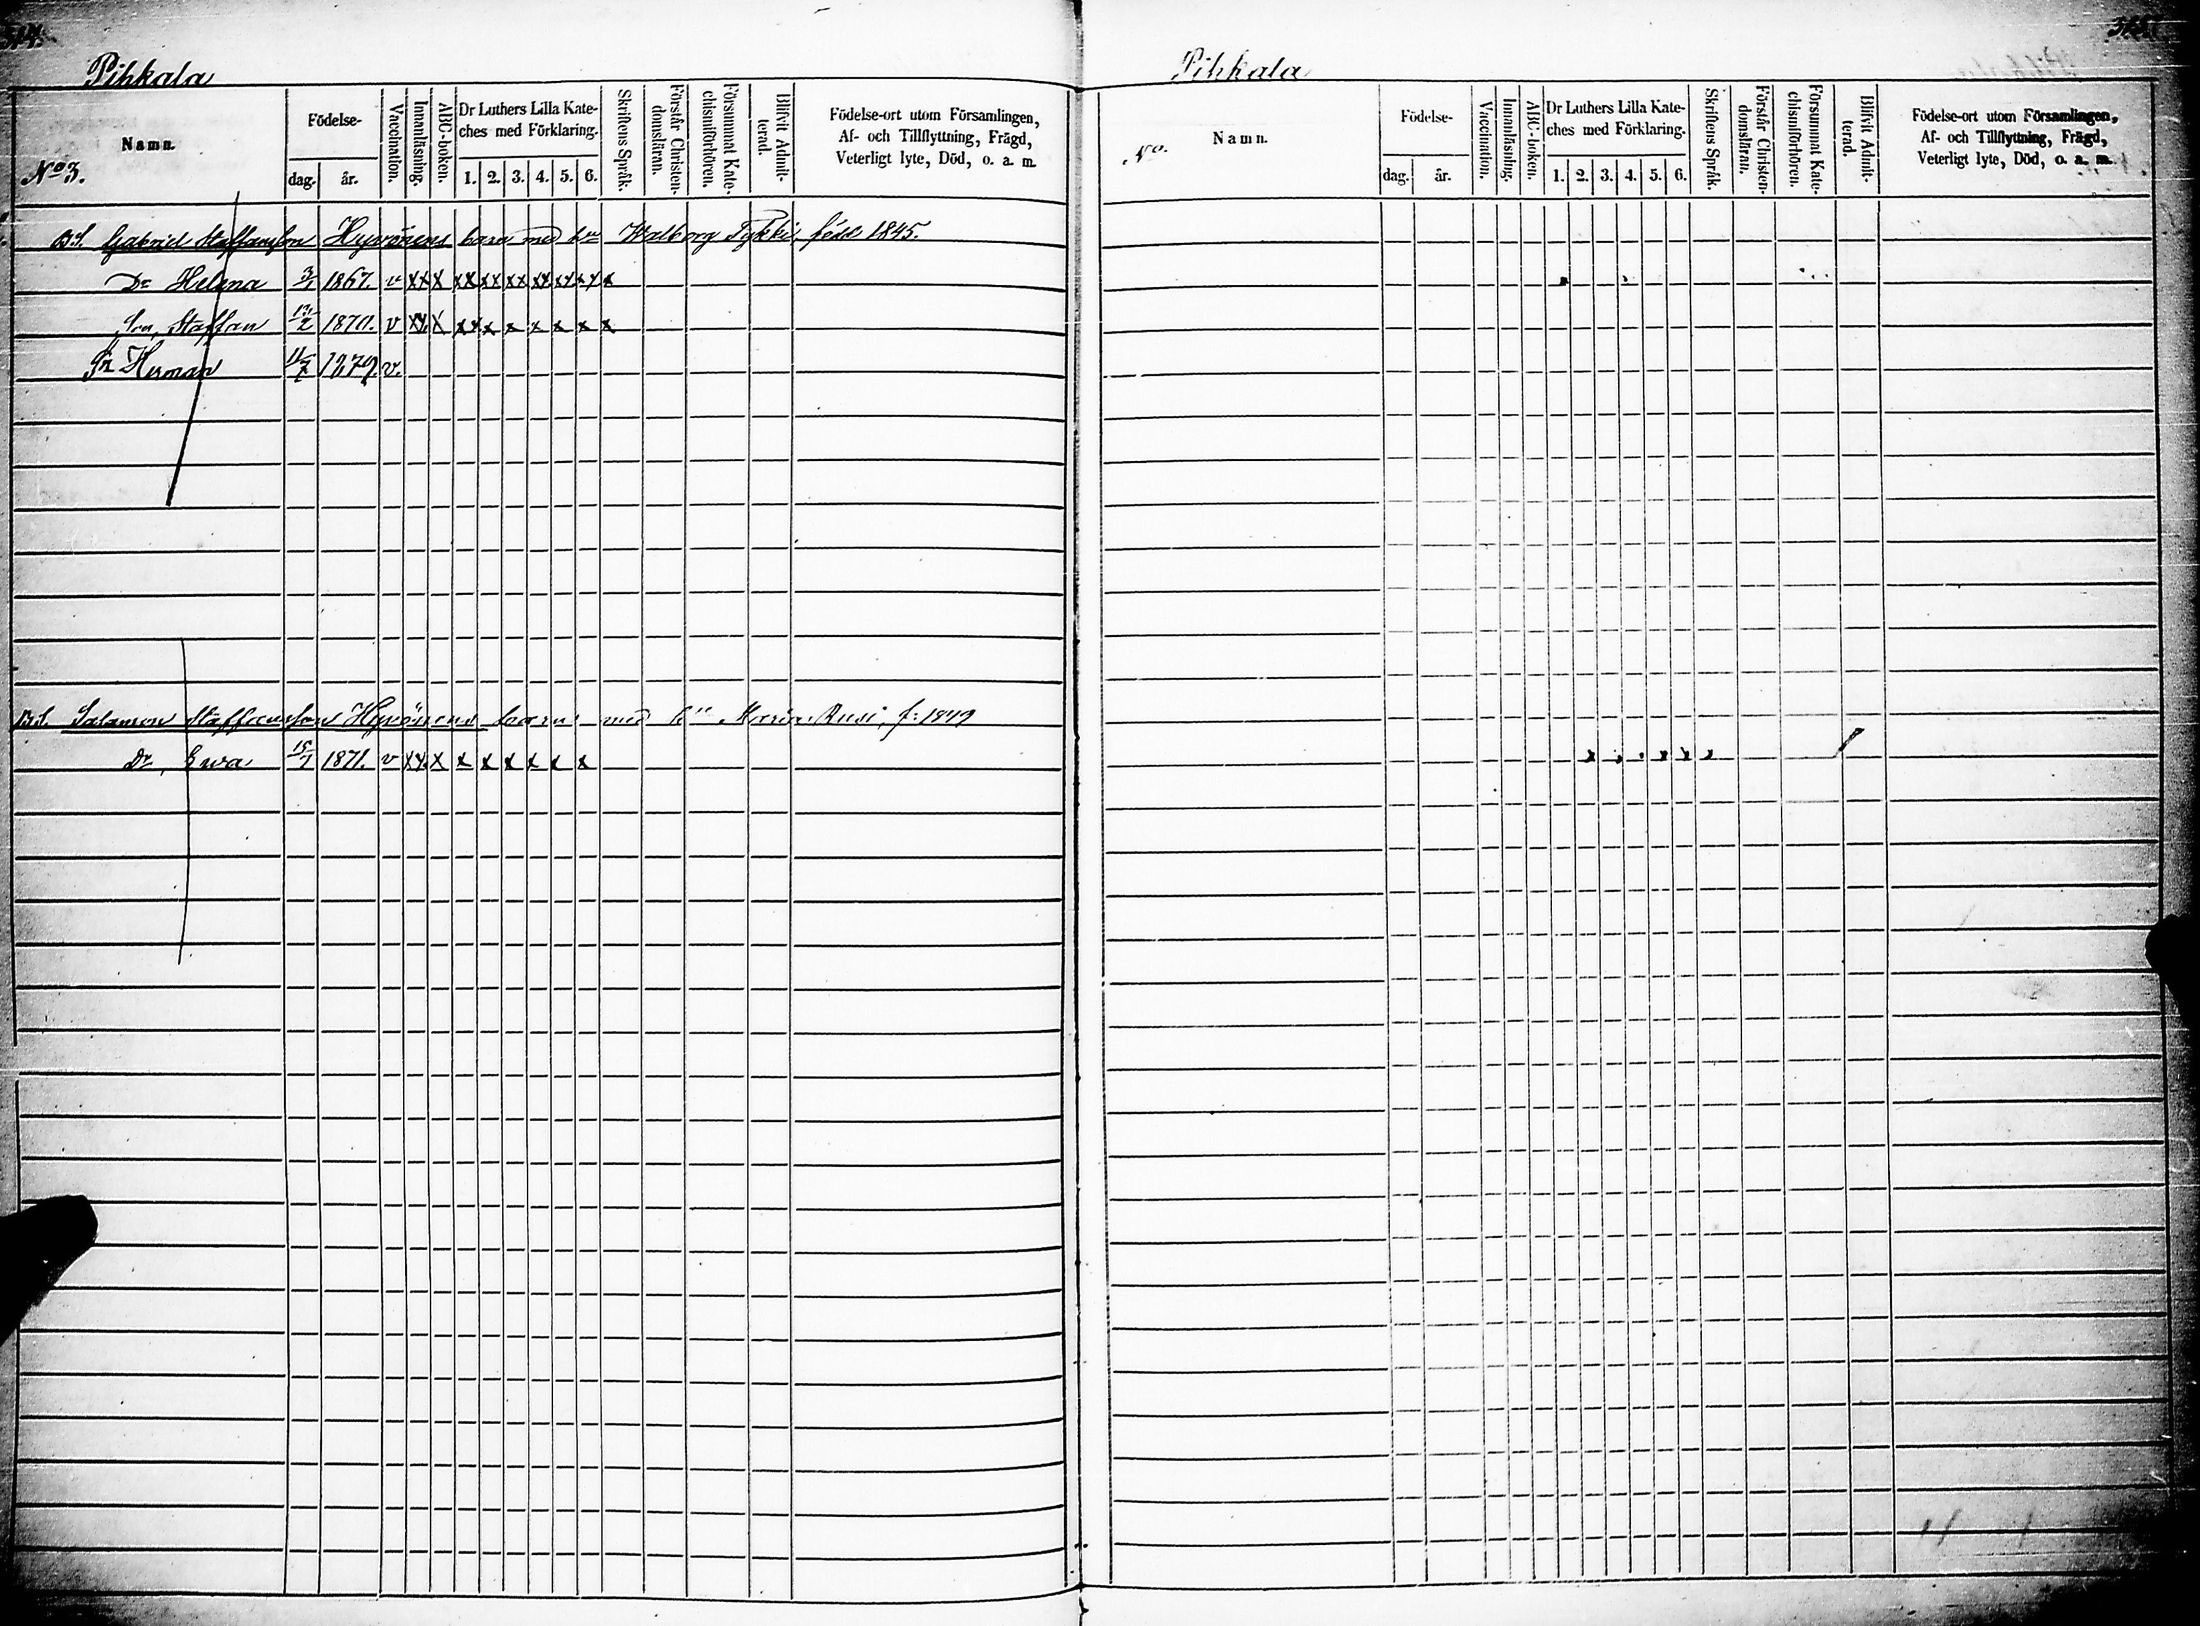 Pihkala
No 3. Namn. Födelse- dag. år. Vaccination. Innanläsning. ABC-boken. Dr Luthers Lilla Kateches med Förklaring. 1. 2. 3. 4. 5. 6. Skriftens Språk. Förstår Christendomsläran. Försummat Katechismiförhören. Blifvit Admitterad. Födelse-ort utom Församlingen, Af- och Tillflyttning, Frägd, Veterligt lyte, Död, o. a. m.
B.S. Gabriel Staffansson Hyvönens barn med hu Walborg Tykki, född 1845.
Dr Helena 3/1 1867. v xx x xx xx xx xx xx xx x
Son, Staffan 2 1870. v xx x xx x x x x x x
Sn Herman 11/7 1279. v.
B.S. Salamon Staffansson Hyvönens barn med hu Maria Rusi, f: 1849
Dr, Ewa 15/7 1871. v xx x x x x x x x
Pihkala
No. Namn. Födelse- dag. år. Vaccination. Innanläsning. ABC-boken. Dr Luthers Lilla Kateches med Förklaring. 1. 2. 3. 4. 5. 6. Skriftens Språk. Förstår Christendomsläran. Försummat Katechismiförhören. Blifvit Admitterad. Födelse-ort utom Församlingen, Af- och Tillflyttning, Frägd, Veterligt lyte, Död, o. a. m.